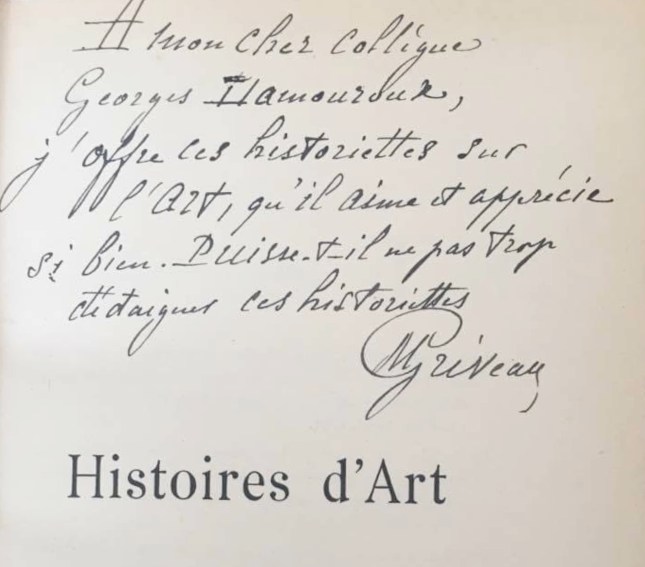 A mon cher collègue
Georges Hamouroux,
j'offre ces historiettes sur
l'Art, qu'il aime et apprécie
si bien. Puisse-t-il ne pas trop
dédaigner ces historiettes
MGriveau
Histoires d'Art